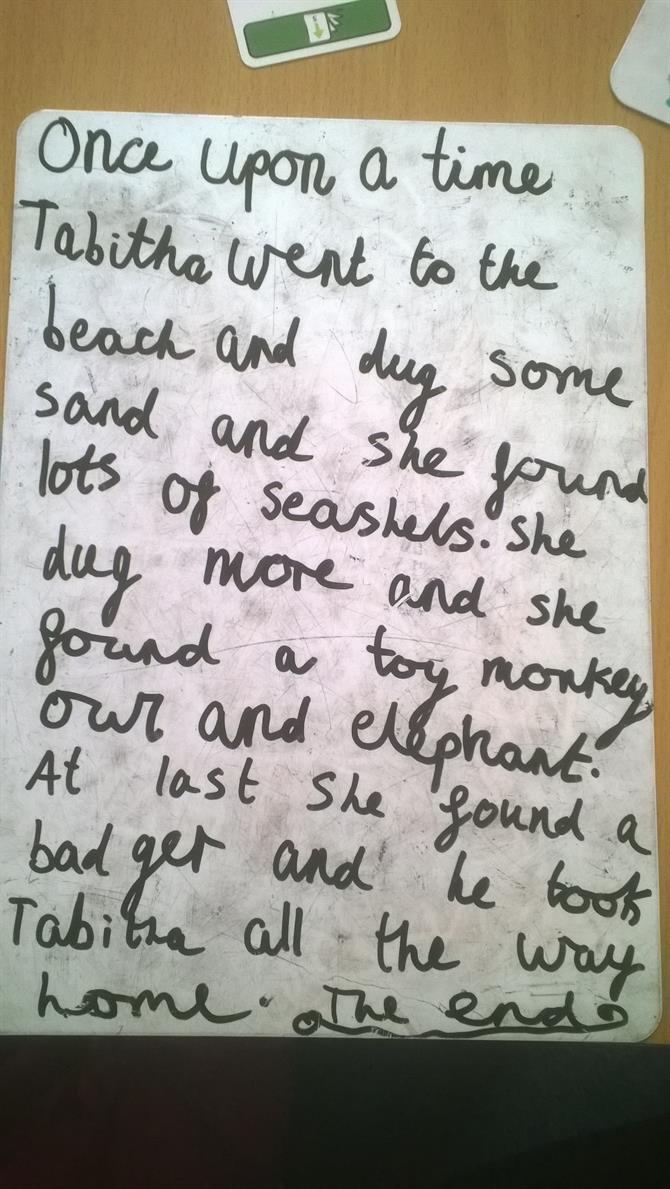 Once upon a time
Tabitha went to the
beach and dug some
sand and she found
lots of seashels. She
dug more and she
found a toy monkey
owl and elephant.
At last she found a
badger and he took
Tabitha all the way
home. The end